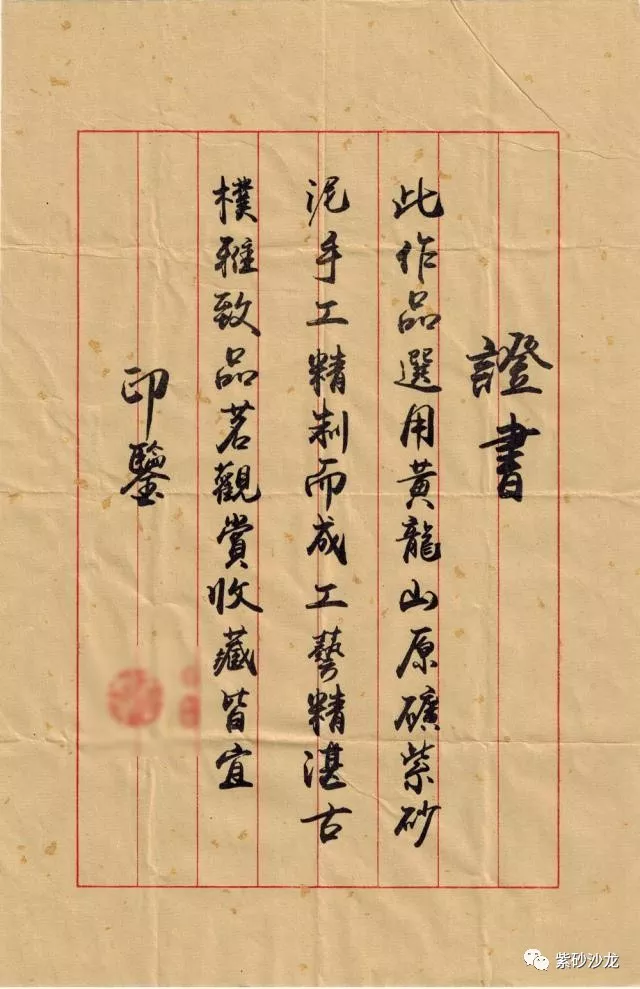 證書
此作品選用黃龍山原礦紫砂
泥手工精制而成工藝精湛古
樸雅致品茗觀賞收藏皆宜
印鑒
紫砂沙龙